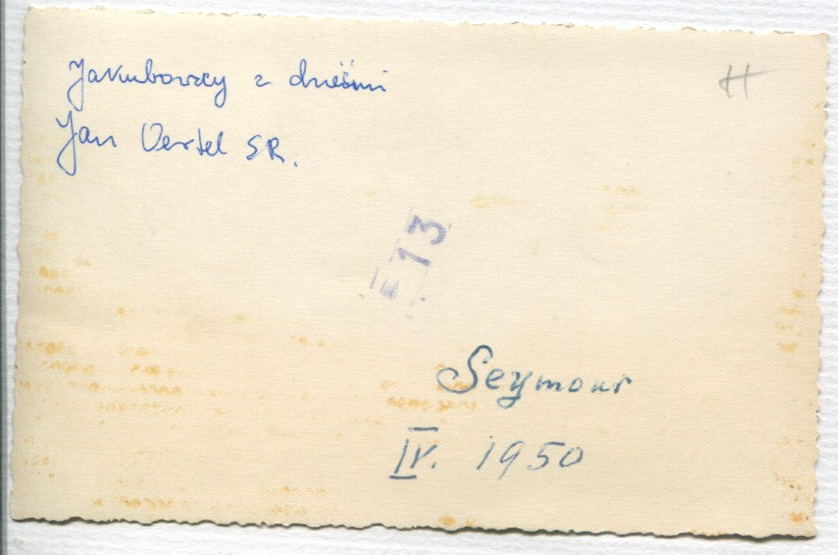 Jakubowscy z dziećmi
Jan Oertel SR.
H
13
Seymour
IV. 1950